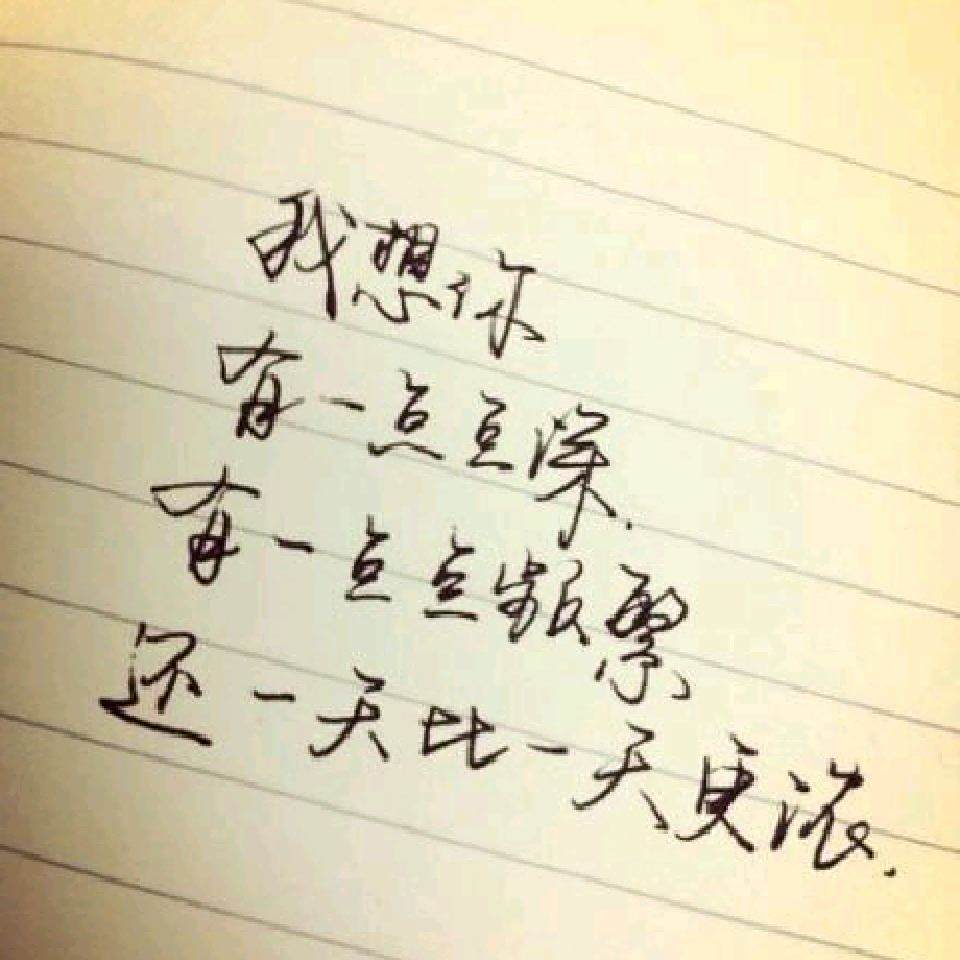 我想你
有一点点深.
有一点点频繁
还一天比一天更浓.